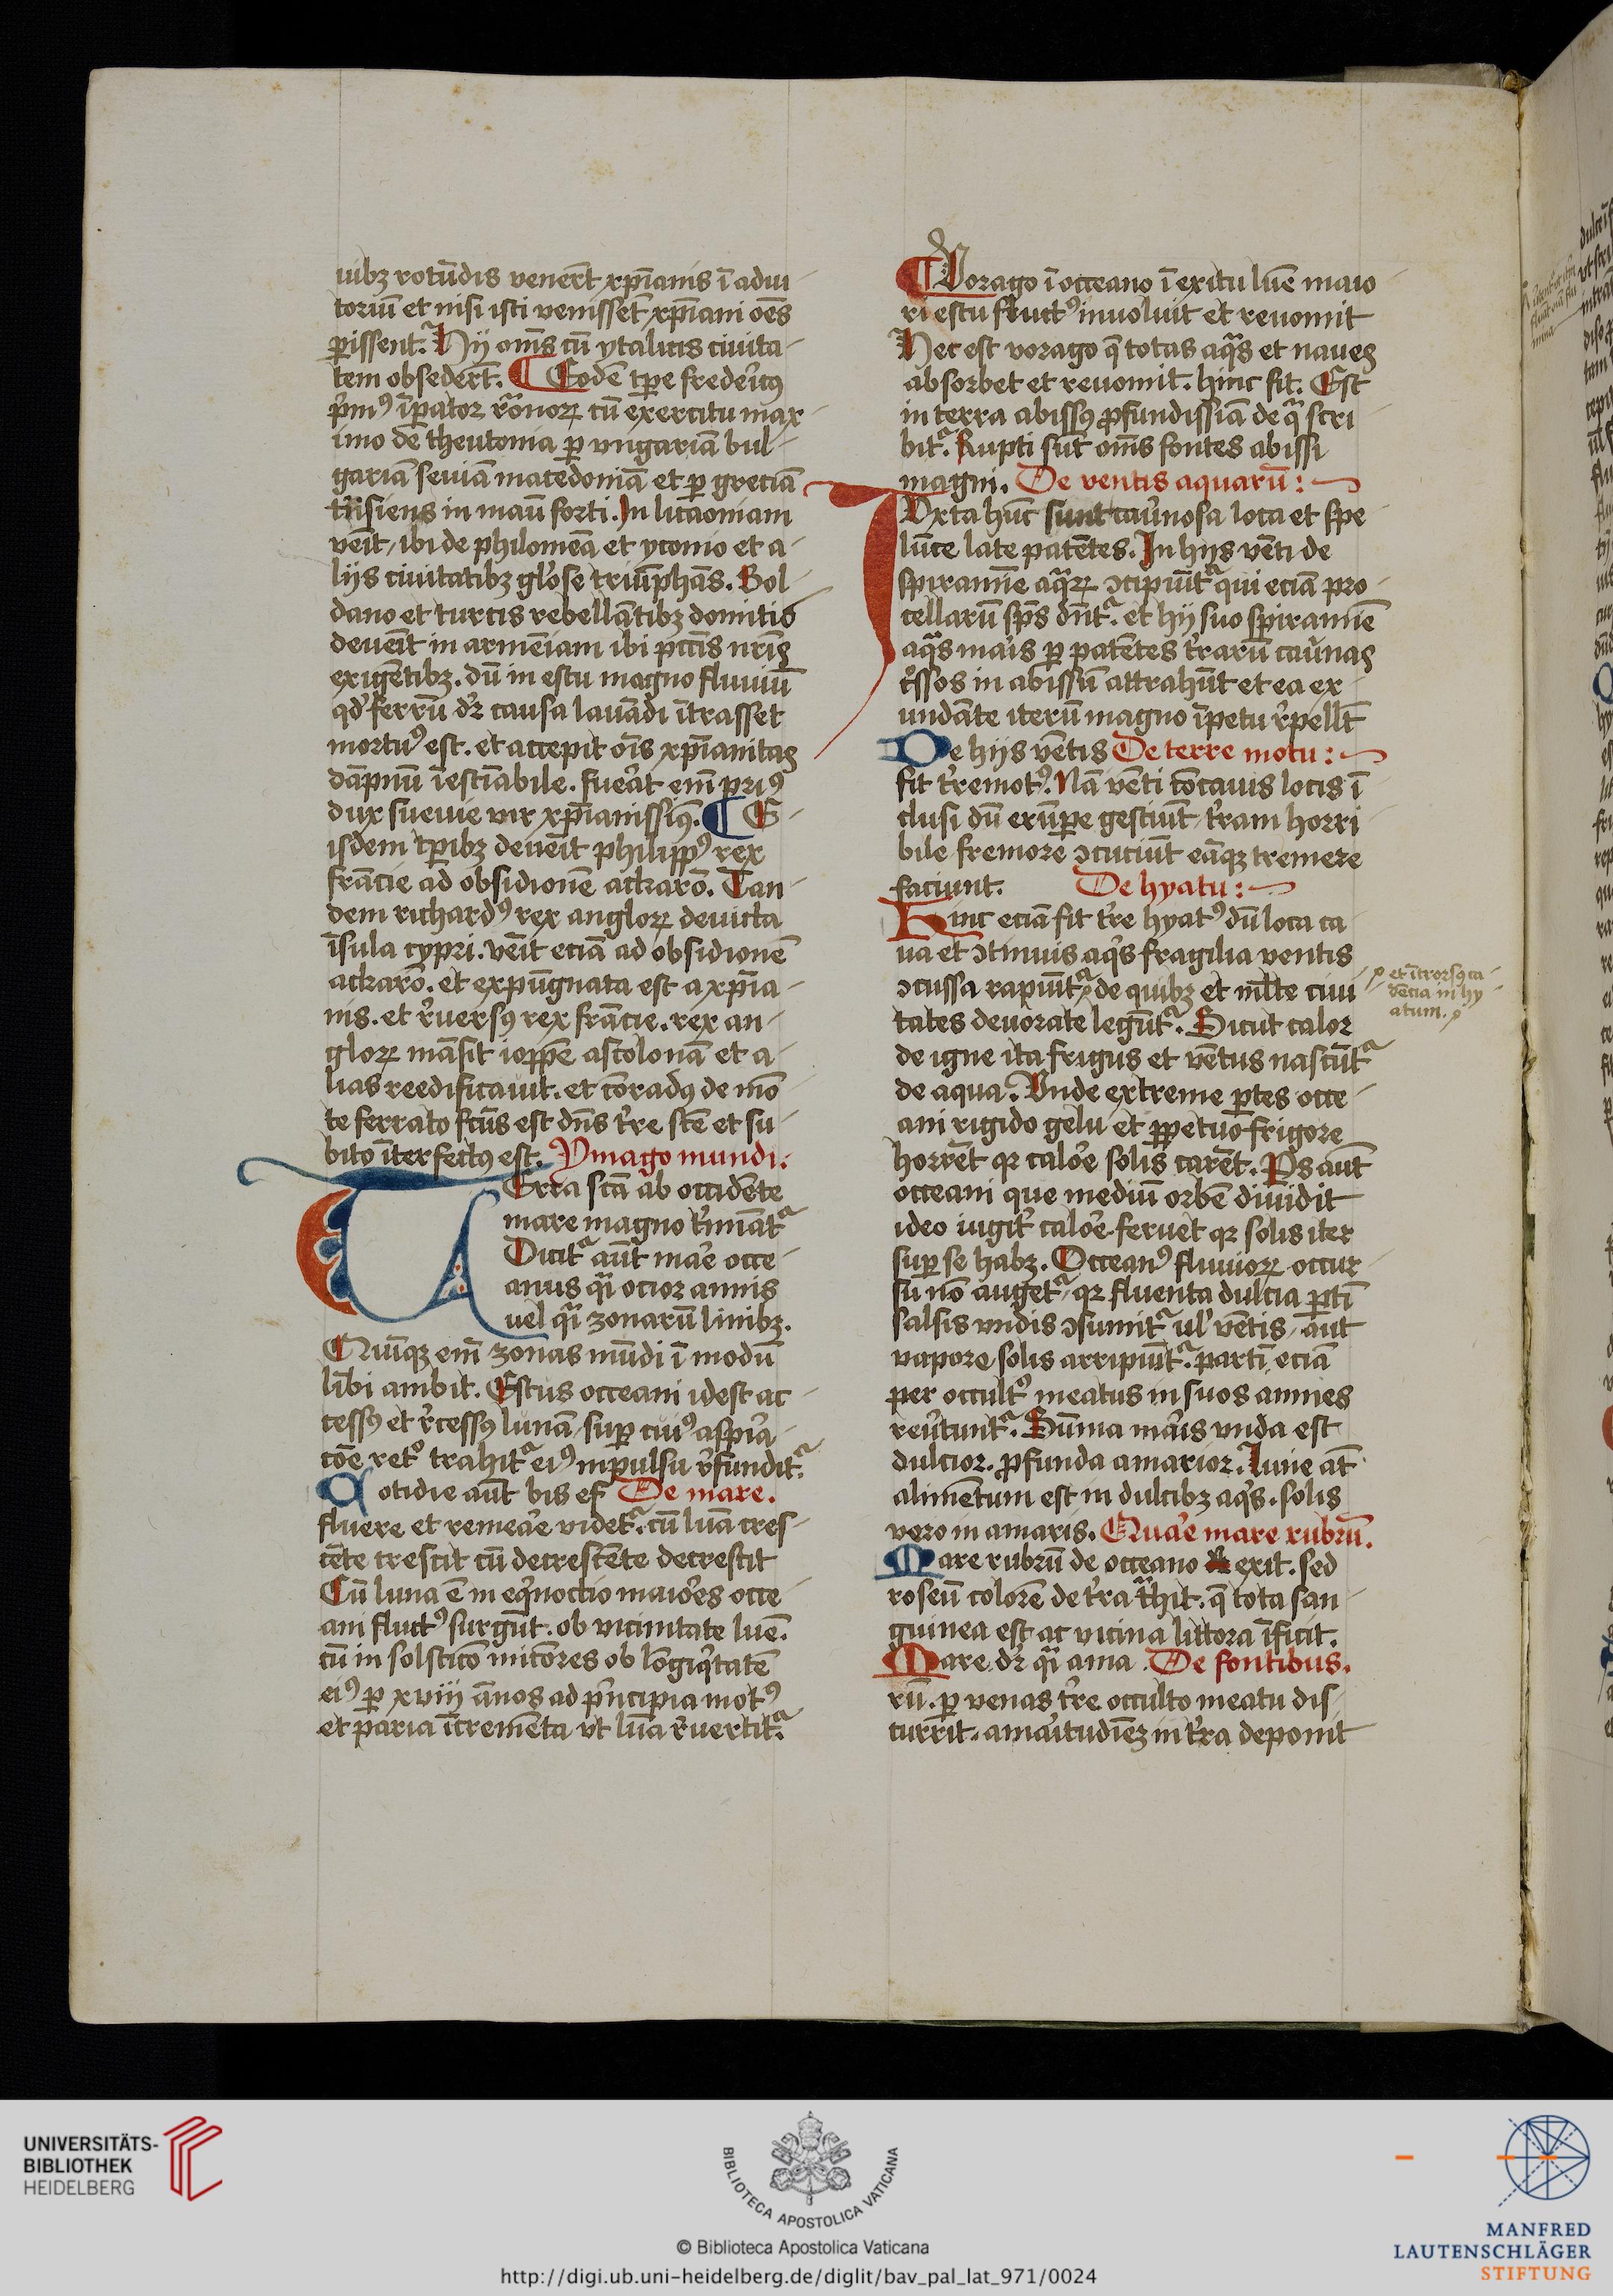 uibꝫ rotūdis venerūt xp̄ianis ī adiu
toriū et nisi isti venissēt xp̄iani oēs
ꝑissent. Hij om̄s cū ytalicis ciuita
tem obsederūt. ¶ Eodē tꝑe fredericꝰ
p̄mꝰ īꝑator rōnoꝝ cū exercitu max
imo de theutonia ꝑ vngariā bul
gariā seuiā macedoniā et ꝑ greciā
trāsiens in manu forti. In licaoniam
venit, ibi de philomea et yconio et a
lijs ciuitatibꝫ glōse triūphās. Sol
dano et turcis rebellātibꝫ domitis
deuenit in armēiam ibi pcc̄is nr̄is
exigētibꝫ. dū in estu magno fluuiū
qd̓ ferrū dr̄ causa lauādi ītrasset
mortuꝰ est. et accepit oīs xp̄ianitas
dāpnū īestīabile. fuerat em̄ priꝰ
dux sueuie vir xp̄ianissimꝰ. ¶ E
isdem tꝑibꝫ deuenit philippꝰ rex
frācie ad obsidionē ackarō. Tan
dem richardꝰ rex angloꝝ deuicta
īsula cypri. venit eciā ad obsidionē
ackarō. et expūgnata est a xp̄ia
nis. et r̓uersꝰ rex frācie. rex an
gloꝝ māsit ioppē ascolonā et a
lias reedificauit. et cōradꝰ de mō
te ferrato fcūs est dn̄s tr̄e scē et su
bito īterfectꝰ est. Ymago mundi:
Terra scā ab occidēte
mare magno t̓mināt᷑
Dicit᷑ aūt mar̓e occe
anus qᷓi ocior amnis
uel qᷓi zonarū limbꝫ.
Quīqꝫ em̄ zonas mūdi ī modū
limbi ambit. Estus occeani id est ac
cessꝰ et r̓cessꝰ lunā, suꝑ cuiꝰ aspira
cōe retº trahit᷑ eiꝰ inpulsu r̓fundit᷑.
Cotidie aūt bis ef De mare.
fluere et remear̓e videt᷑. cū luna cres
cēte crescit cū decrescēte decrescit
Cū luna ē in eqͥnoctio maior̓es occe
ani fluctꝰ surgūt. ob vicinitate lune.
cū in solsticō minores ob lōgiqͥtatē
eiꝰ ꝑ xviij ānos ad pͥncipia motꝰ
et paria īcremēta vt luna r̓uertit᷑.
¶ Vorago ī occeano ī exitu lune maio
ri estu fluctꝰ inuoluit et reuomit
Hec est vorago q̄ totas aqᷓs et naues
absorbet et reuomit. hinc fit. Est
in terra abissꝰ ꝓfundissīa de qᷓ scri
bit᷑. Rupti sūt om̄s fontes abissi
magni. De ventis aquarū:
Iuxta hūc sunt cau̓nosa loca et spe
lūce late patētes. In hijs vēti de
spiramīe aqᷓꝝ ↄcipiūt᷑ qui eciā pro
cellarū sp̄s dn̄t᷑. et hij suo spiramīe
aqᷓs maris ꝑ patētes t̓rarū cau̓nas
r̓ssos in abissū attrahūt et ea ex
undāte iterū magno īpetu r̓pellūt
De hijs vētis De terre motu:
fit t̓remotꝰ. Nā vēti cōcauis locis ī
clusi dū erūꝑe gestiūt, t̓ram horri
bile fremore ↄcuciūt eāqꝫ tremere
faciunt. De hyatu:
Hinc eciā fit t̓re hyatꝰ dū loca ca
ua et ↄtinuis aqͥs fragilia ventis
ↄcussa rapiūt᷑, de quibꝫ et mlte ciui
et ītrorsꝰ ca
dēcia in hy
atum.
tates deuorate legūt᷑. Sicut calor
de igne ita frigus et vētus nascūt᷑
de aqua. Vnde extreme ꝑtes occe
ani rigido gelu et ꝑpetuo frigore
horrēt qꝛ calor̓e solis carēt. Ps aūt
occeani que mediū orbē diuidit
ideo iugit̓ calor̓e feruet qꝛ solis iter
suꝑ se habꝫ. Occeanꝰ fluuioꝝ occur
su nō auget᷑, qꝛ fluenta dulcia ꝑtī
salsis vndis ↄsumit᷑ ul̓ vētis, aut
vapore solis arripiūt᷑. partī eciā
per occultº meatus in suos amnes
reu̓tunt᷑. Sūma maris vnda est
dulcior. ꝓfunda amarior. Lune at̄
alimētum est in dulcibꝫ aqͥs. solis
vero in amaris. Quar̓e mare rubrū.
Mare rubrū de occeano exit. sed
roseū colorē de t̓ra trahit. q̄ tota san
guinea est ac vicina littora īficit.
Mare dr̄ qᷓi ama De fontibus.
rū. ꝑ venas t̓re occulto meatu dis
currit. amaritudīeꝫ in t̓ra deponit
UNIVERSITÄTS-
BIBLIOTHEK
HEIDELBERG
BIBLIOTECA APOSTOLICA VATICANA
© Biblioteca Apostolica Vaticana
http://digi.ub.uni-heidelberg.de/diglit/bav_pal_lat_971/0024
MANFRED
LAUTENSCHLÄGER
STIFTUNG